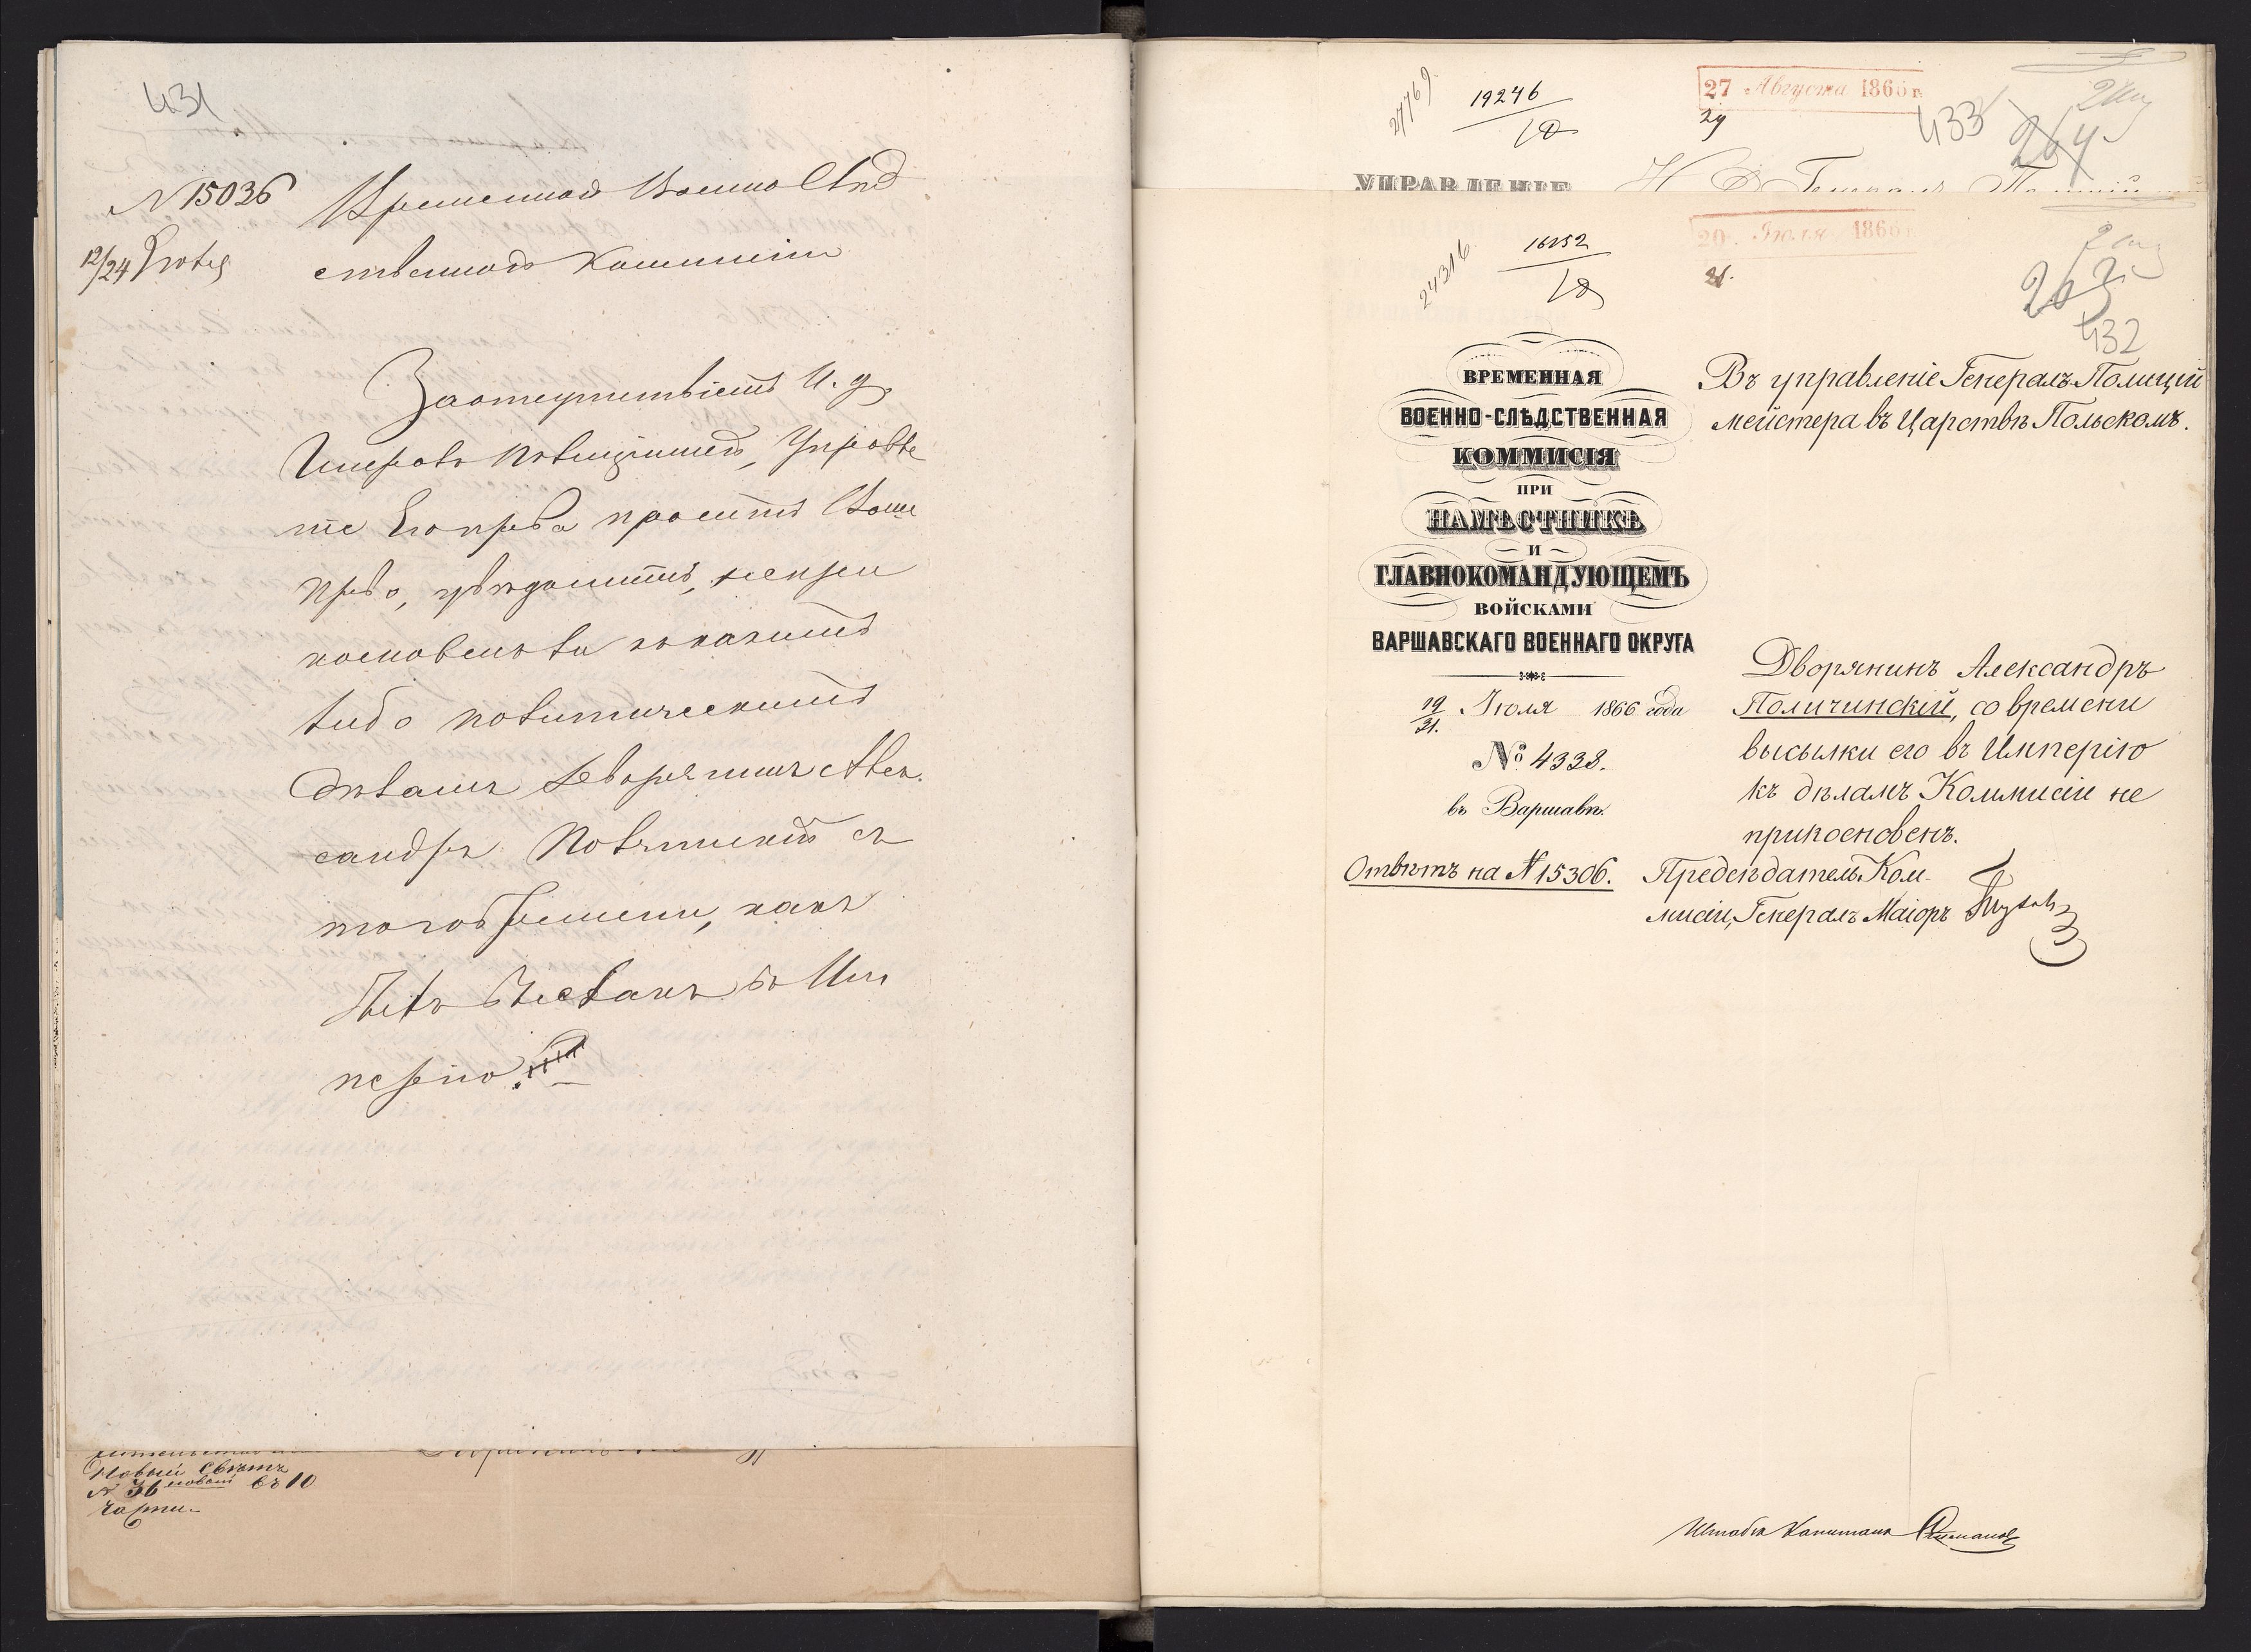 431
N 15036
Временной Военно Слѣд
12/24 Іюля
ственной Коммисіи
За отсутствіемъ И. д.
Генералъ Полиціймей, Управле
ніе Его прев-а проситъ Ваше
прев-о, увѣдомить, не при
косновенъ ли къ какимъ
либо политическимъ
дѣламъ дворянинъ Алек-
сандръ Поличинскій съ
того времени, какъ
былъ высланъ въ Им
перію
Новый Свѣтъ
N 36 новый въ 10
части
27769
19246
10
27 Августа 1866 г.
29
433
264
УПРАВЛЕНІЕ
24316
16252
10
20 Іюля 1866 г.
21.
263
432
ВРЕМЕННАЯ
ВОЕННО-СЛѢДСТВЕННАЯ
КОММИСІЯ
ПРИ
НАМѢСТНИКѢ
И
ГЛАВНОКОМАНДУЮЩЕМЪ
ВОЙСКАМИ
ВАРШАВСКАГО ВОЕННАГО ОКРУГА
19/31. Іюля 1866 года
№ 4338.
въ Варшавѣ.
Отвѣтъ на N 15306.
Въ управленіе Генералъ-Полицій
мейстера въ Царствѣ Польскомъ.
Дворянинъ Александръ
Поличинскій, со времени
высылки его въ Имперію
къ дѣламъ Коммисіи не
прикосновенъ.
Предсѣдатель Ком-
мисіи, Генералъ Маіоръ
Штабсъ Капитанъ